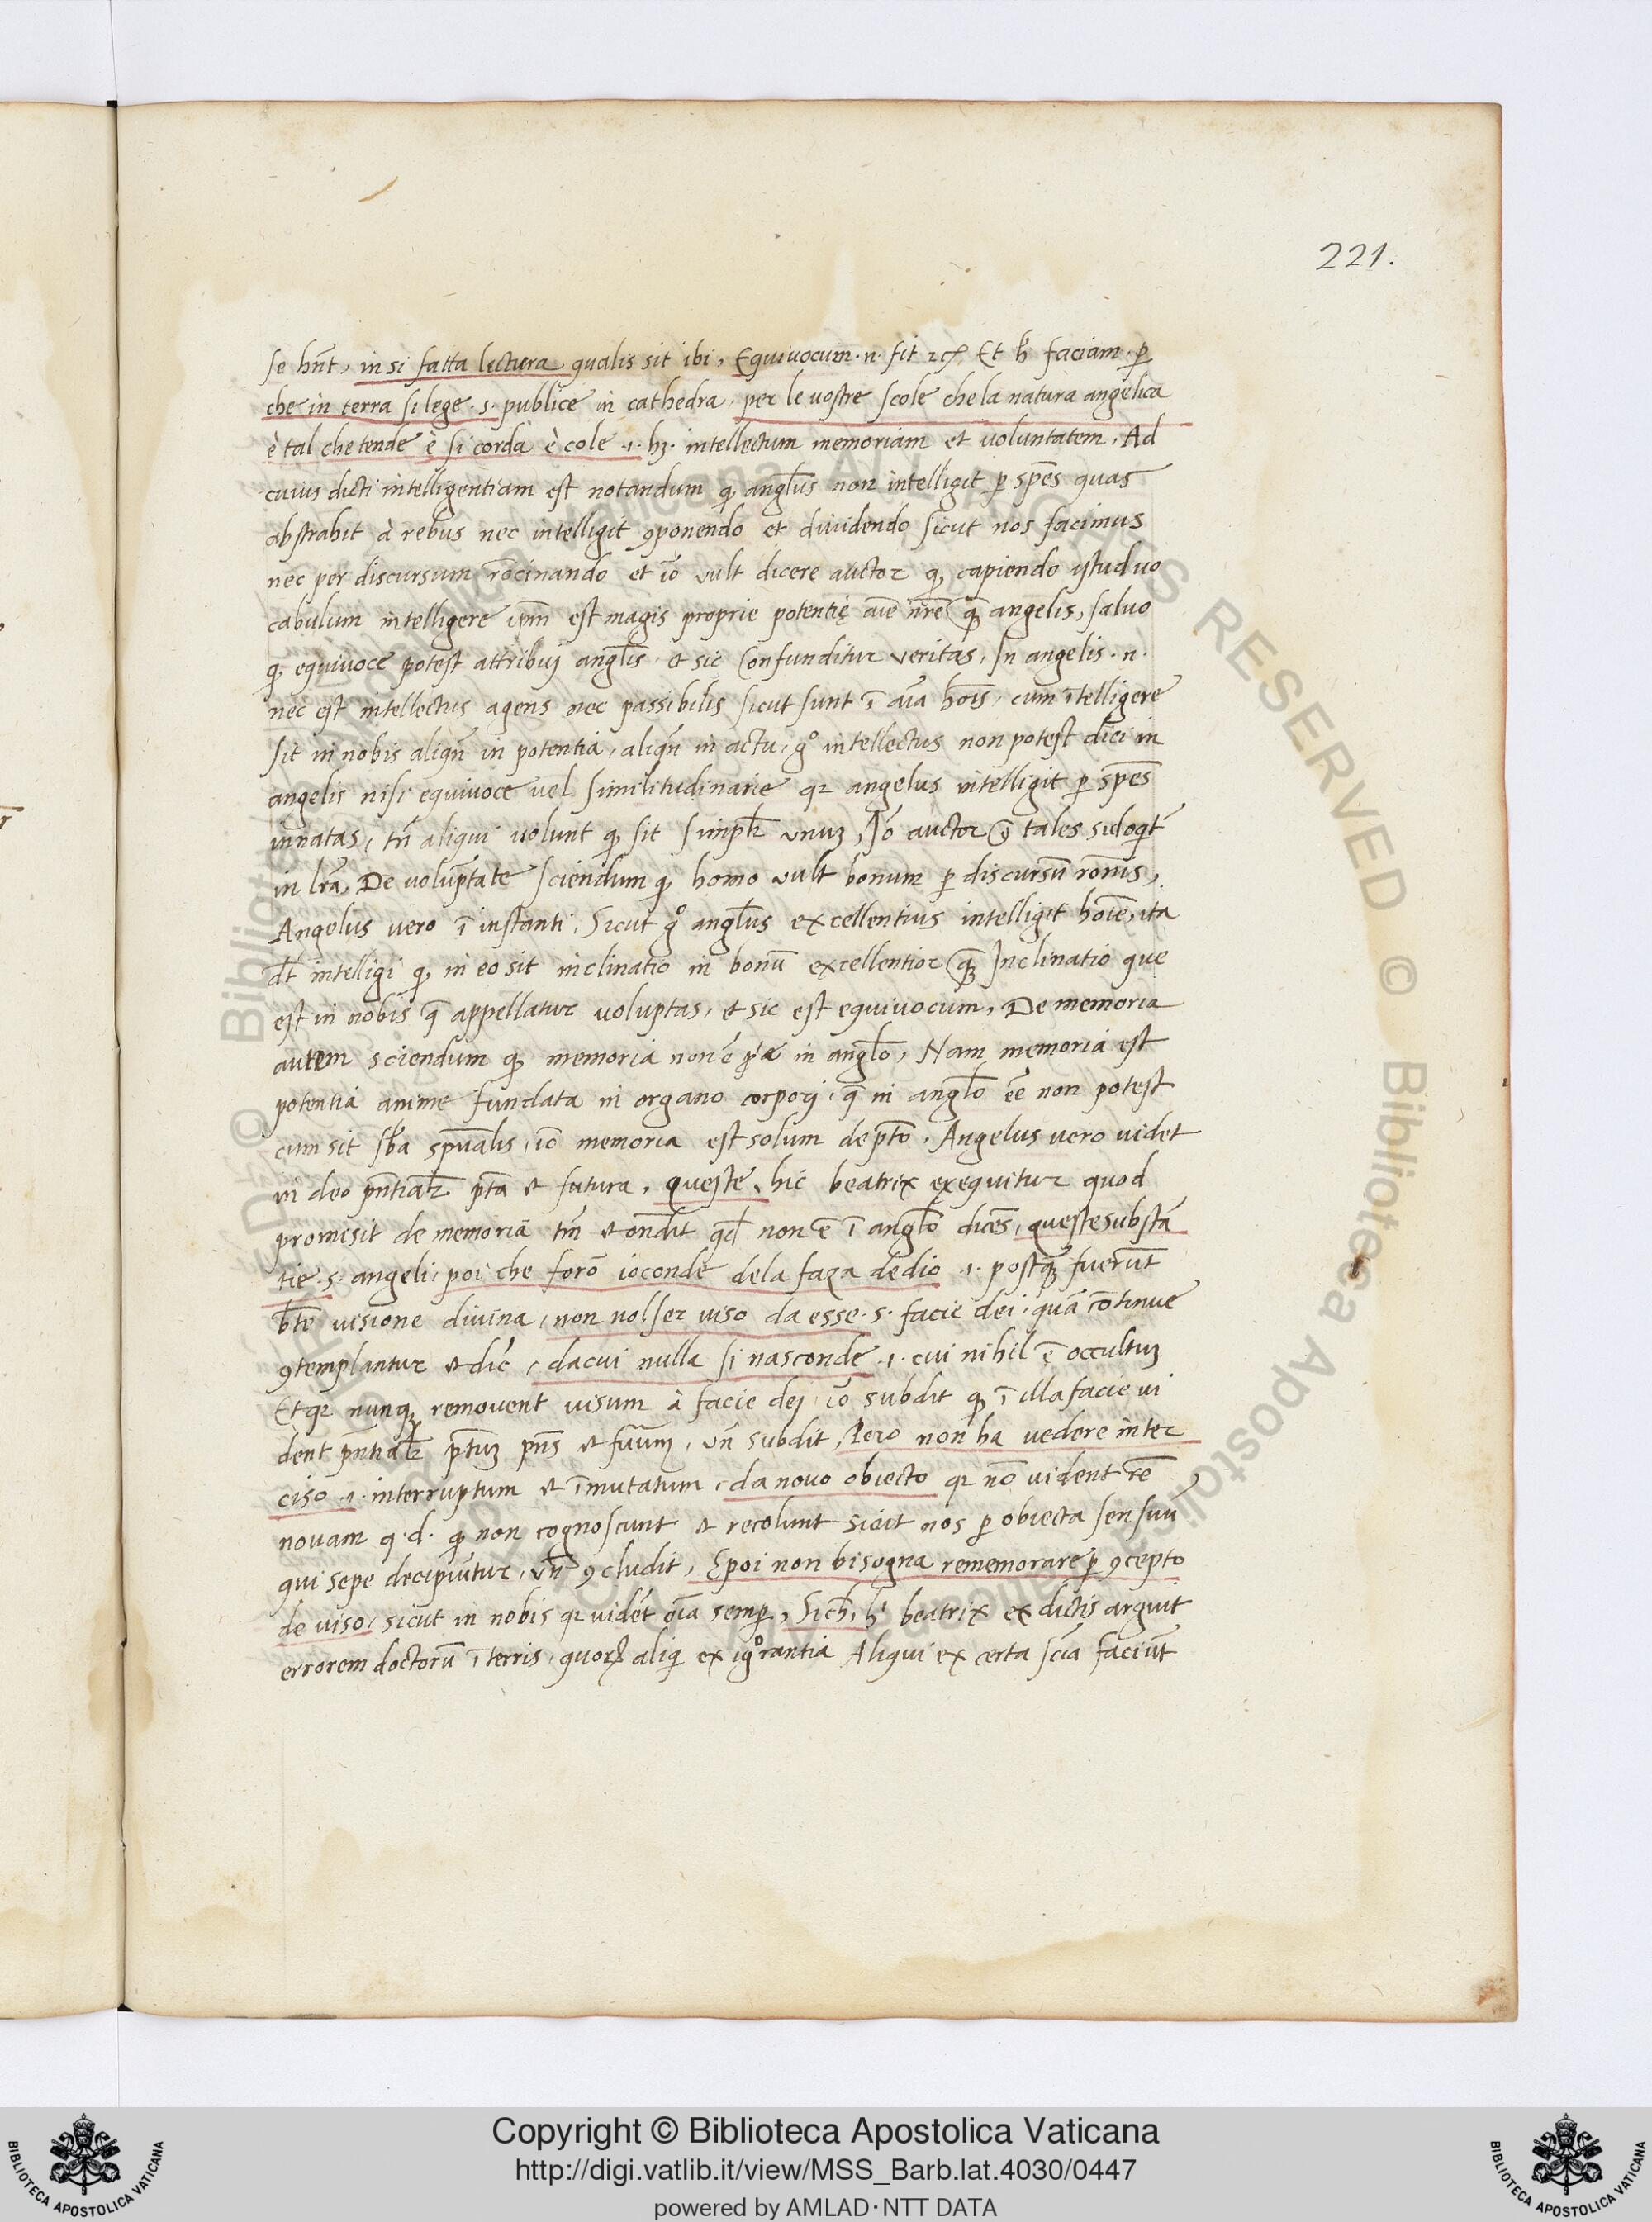 221.
se hn̄t, in si fatta lectura qualis sit ibi, Equivocum .n. fit ⁊cꝭ Et h̄ faciam. ꝑ
che in terra si lege .s. publice in cathedra, per le vostre scole che la natura angelica
è tal che tende è si corda è cole .i. hꝫ. intellectum memoriam et voluntatem, Ad
cuius dicti intelligentiam est notandum ꝙ angl̄us non intelligit ꝑ sp̄es quas
abstrahit à rebus nec intelligit ꝯponendo et dividendo sicut nos facimus
nec per discursum rōcinando et iō vult dicere auctor ꝙ capiendo istud vo
cabulum intelligere ip̄m est magis proprie potentię aīe nr̄e qꝫ angelis, salvo
ꝙ equivoce potest attribuj angl̄is, et sic confunditur veritas, In angelis .n.
nec est intellectus agens nec passibilis sicut sunt ī aīa hoīs, cum ītelligere
sit in nobis aliqn̄ in potentia, aliqn̄ in actu, gͦ intellectus non potest dici in
angelis nisi equivoce vel similitudinarie qꝛ angelus intelligit ꝑ sp̄es
innatas, tn̄ aliqui volunt ꝙ sit simpl̄r unuꝫ, Iō auctor tales
in lr̄a, De voluptate sciendum ꝙ homo vult bonum ꝑ discursū rōnis,
Angelus vero ī instanti, Sicut gͦ angl̄us excellentius intelligit hoīe, ita
dt̄ intelligi ꝙ in eo sit inclinatio in bonū excellentior qꝫ Inclinatio que
est in nobis q̄ appellatur voluptas, et sic est equivocum, De memoria
autem sciendum ꝙ memoria non ē in angl̄o, Nam memoria est
potentia anime fundata in organo corporj, q̄ in angl̄o eē non potest
cum sit sb̄a spūalis, iō memoria est solum de p̄to. Angelus vero videt
in deo pn̄tial̄r p̄ta et futura, queste, hic beatrix exequitur quod
promisit de memoria tm̄ et on̄dit qd̄ non ē ī angl̄o dicēs, queste substā
tie .s. angeli, poi che forō ioconde dela faza de dio .i. postqꝫ fuerūt
b̄te visione divina, non volser viso da esse .s. facie dei, quā cōtinue
ꝯtemplantur et dic̄, da cui nulla si nasconde .i. cui nihil ē occultuꝫ
Et qꝛ nunqꝫ removent visum à facie dej iō subdit ꝙ ī illa facie vi
dent pn̄tial̄r p̄tuꝫ pn̄s et fuūꝫ, vn̄ subdit, Pero non ha vedere inter
ciso .i. interruptum et īmutatum, da novo obiecto qꝛ nō vident rē
novam q.d. ꝙ non cognoscunt et recolunt sicut nos ꝑ obiecta sensuū
qui sepe decipiūtur, vn̄ ꝯcludit, E poi non bisogna rememorare ꝑ ꝯcepto
de viso, sicut in nobis qꝛ vidēt oīa semꝑ, Sich, h̄ beatrix ex dictis arguit
errorem doctorū ī terris, quoꝝ aliqͥ ex igͦrantia Aliqui ex certa scīa faciūt
© Biblioteca Apostolica Vaticana ALL RIGHTS RESERVED © Biblioteca Apostolica Vaticana
Copyright © Biblioteca Apostolica Vaticana
http://digi.vatlib.it/view/MSS_Barb.lat.4030/0447
powered by AMLAD·NTT DATA
BIBLIOTECA APOSTOLICA VATICANA
BIBLIOTECA APOSTOLICA VATICANA